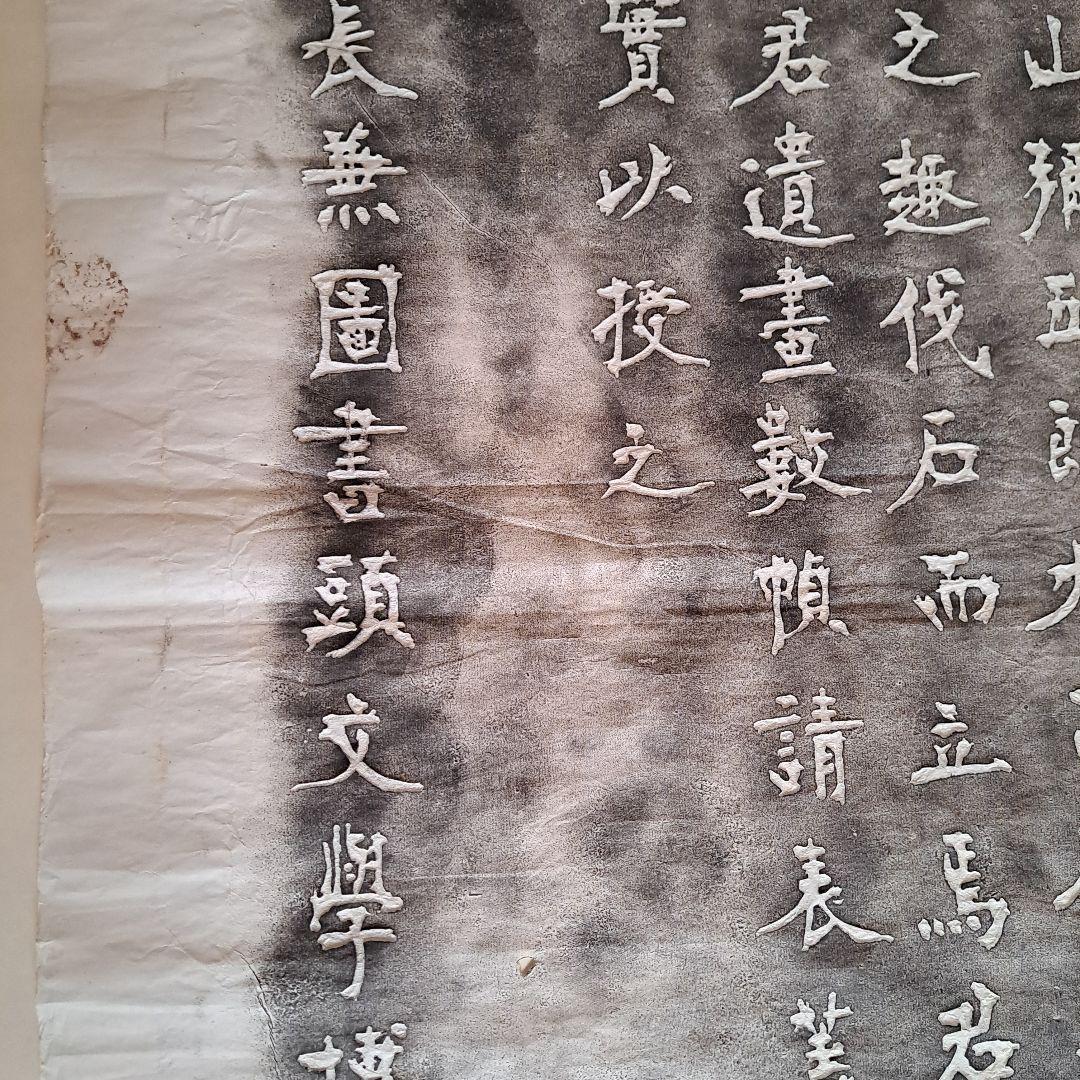 山彌
之趣伐石而立焉君
君遺畫數幀請表
實以授之
長兼圖書頭文學博